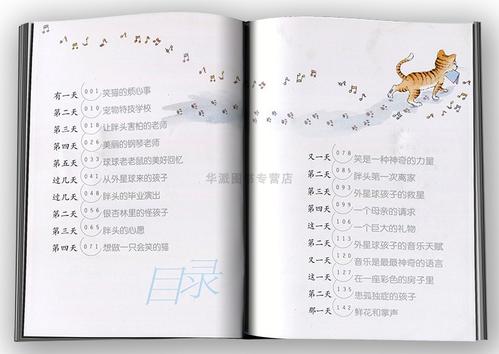 有一天 001 笑猫的烦心事
第二天 010 宠物特技学校
第三天 018 让胖头害怕的老师
第四天 026 美丽的钢琴老师
第五天 033 球球老老鼠的美好回忆
过几天 041 从外星球来的孩子
过几天 048 胖头的毕业演出
第二天 056 银杏林里的怪孩子
第三天 065 胖头的心愿
第四天 071 想做一只会笑的猫
目录
华派图书专营店
又一天 078 笑是一种神奇的力量
第二天 085 胖头第一次离家
第三天 093 外星球孩子的救星
第四天 099 一个母亲的请求
这一天 106 一个巨大的礼物
第二天 113 外星球孩子的音乐天赋
又一天 120 音乐是最最神奇的语言
这一天 127 在一座彩色的房子里
第二天 135 患孤独症的孩子
那一天 142 鲜花和掌声